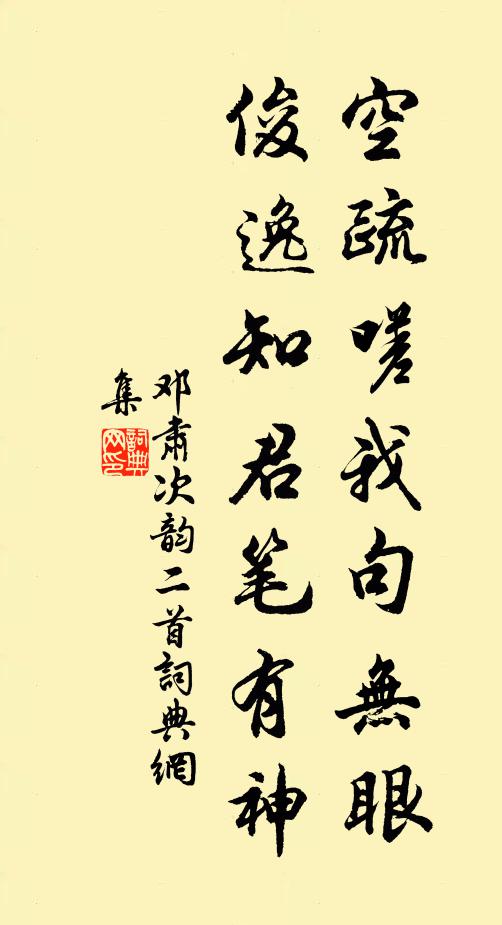 空疏嗟我句無眼
俊逸知君笔有神
邓肃次韵二首詞典網
集
詞典网印